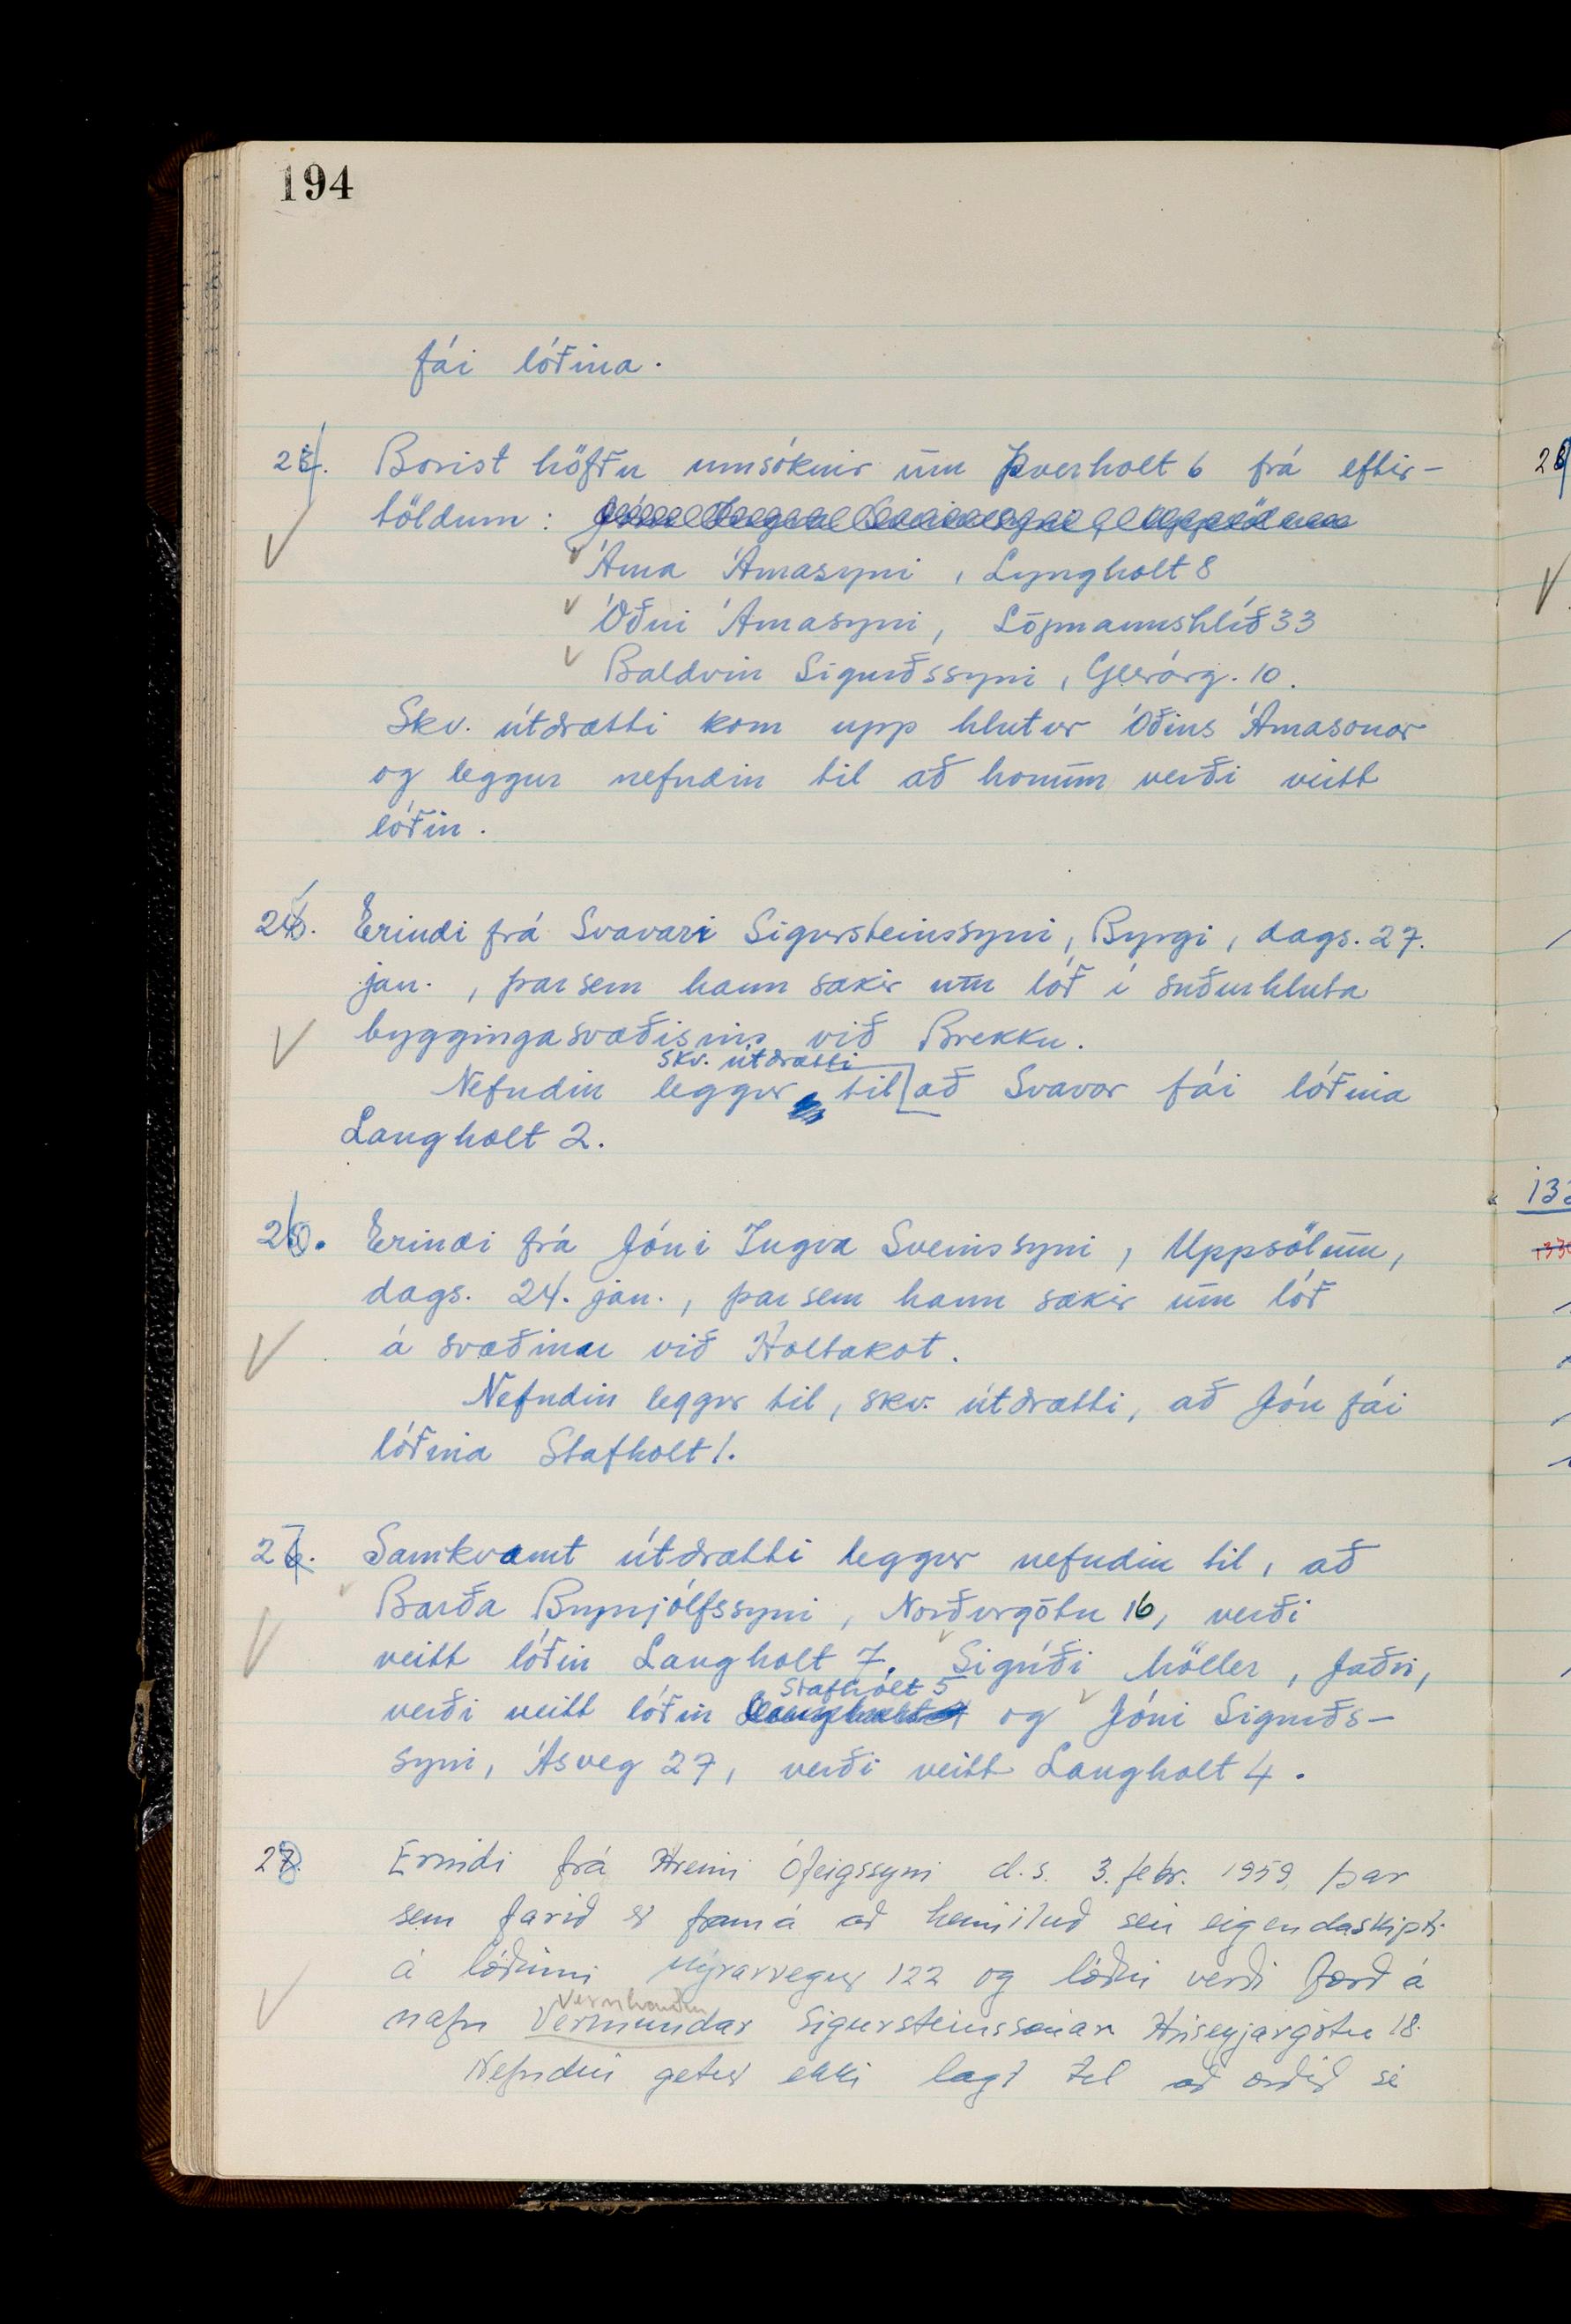 194
fái lóðina.
Borist höfðu umsóknir um Þverholt 6 frá eftir-
töldum: Jóni Ingva Sveinssyni, Uppsölum
Árna Árnasyni, Lyngholt 8
Óðni Árnasyni, Lögmannshlíð 33
Baldvin Sigurðssyni, Glerárg. 10.
Skv. útdrætti kom upp hlutur Óðins Árnasonar
og leggur nefndin til að honum verði veitt
lóðin.
Erindi frá Svavari Sigursteinssyni, Byrgi, dags. 27.
jan., þar sem hann sækir um lóð í suðurhluta
byggingasvæðisins við Brekku.
skv. útdrætti
Nefndin leggur til að Svavar fái lóðina
Langholt 2.
26. Erindi frá Jóni Ingva Sveinssyni, Uppsölum,
dags. 24. jan., þar sem hann sækir um lóð
á svæðinu við Holtakot.
Nefndin leggur til, skv. útdrætti, að Jón fái
lóðina Stafholt 1.
27. Samkvæmt útdrætti leggur nefndin til, að
Barða Brynjólfssyni, Norðurgötu 16, verði
veitt lóðin Langholt 7. Sigríði Möller, Jaðri,
Stafholt 5
verði veitt lóðin Langholt 4 og Jóni Sigurðs-
syni, Ásveg 27, verði veitt Langholt 4.
28. Erindi frá Hreini Ófeigssyni d.s. 3. febr. 1959, þar
sem farið er fram á að heimiluð séu eigendaskipti
á lóðinni Mýrarvegur 122 og lóðin verði færð á
Vernharðar
nafn Vermundar Sigursteinssonar Hríseyjargötu 18.
Nefndin getur ekki lagt til að orðið sé